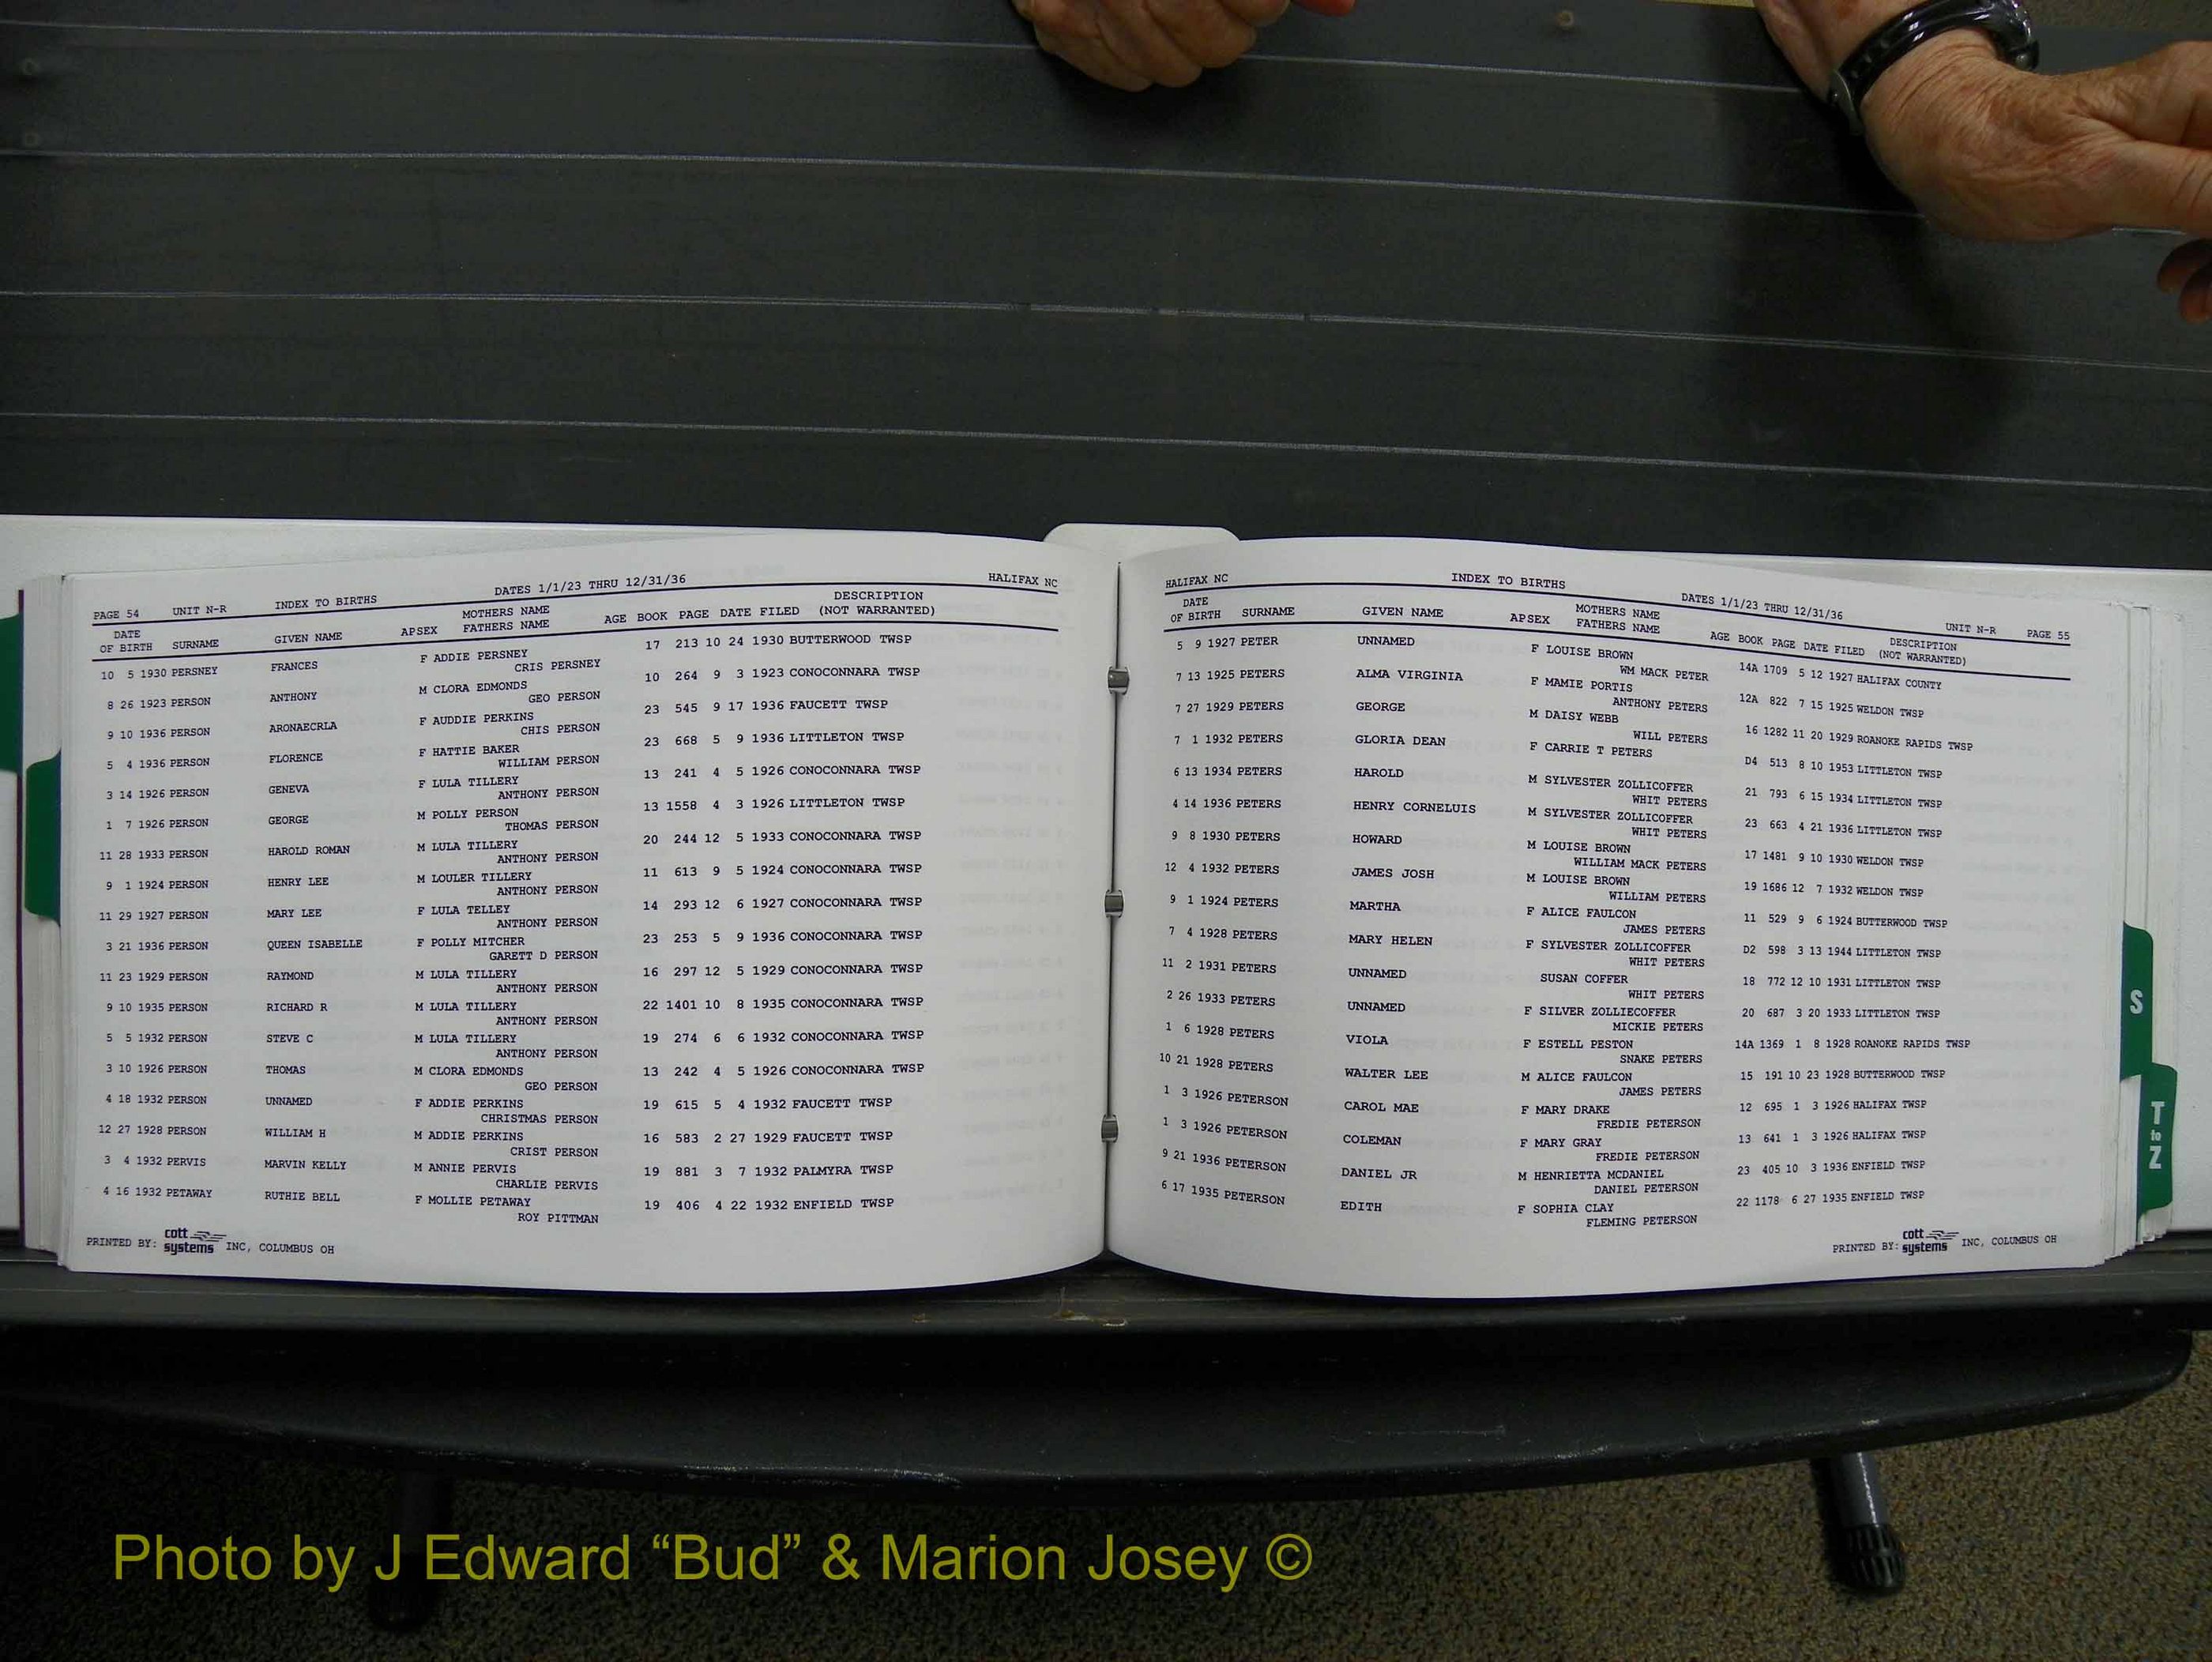 PAGE 54 UNIT N-R INDEX TO BIRTHS DATES 1/1/23 THRU 12/31/36 HALIFAX NC
DATE OF BIRTH SURNAME GIVEN NAME APSEX MOTHERS NAME FATHERS NAME AGE BOOK PAGE DATE FILED DESCRIPTION (NOT WARRANTED)
10 5 1930 PERSNEY FRANCES F ADDIE PERSNEY 17 213 10 24 1930 BUTTERWOOD TWSP
CRIS PERSNEY
8 26 1923 PERSON ANTHONY M CLORA EDMONDS 10 264 9 3 1923 CONOCONNARA TWSP
GEO PERSON
9 10 1936 PERSON ARONAECRLA F AUDDIE PERKINS 23 545 9 17 1936 FAUCETT TWSP
CHIS PERSON
5 4 1936 PERSON FLORENCE F HATTIE BAKER 23 668 5 9 1936 LITTLETON TWSP
WILLIAM PERSON
3 14 1926 PERSON GENEVA F LULA TILLERY 13 241 4 5 1926 CONOCONNARA TWSP
ANTHONY PERSON
1 7 1926 PERSON GEORGE M POLLY PERSON 13 1558 4 3 1926 LITTLETON TWSP
THOMAS PERSON
11 28 1933 PERSON HAROLD ROMAN M LULA TILLERY 20 244 12 5 1933 CONOCONNARA TWSP
ANTHONY PERSON
9 1 1924 PERSON HENRY LEE M LOULER TILLERY 11 613 9 5 1924 CONOCONNARA TWSP
ANTHONY PERSON
11 29 1927 PERSON MARY LEE F LULA TELLEY 14 293 12 6 1927 CONOCONNARA TWSP
ANTHONY PERSON
3 21 1936 PERSON QUEEN ISABELLE F POLLY MITCHER 23 253 5 9 1936 CONOCONNARA TWSP
GARETT D PERSON
11 23 1929 PERSON RAYMOND M LULA TILLERY 16 297 12 5 1929 CONOCONNARA TWSP
ANTHONY PERSON
9 10 1935 PERSON RICHARD R M LULA TILLERY 22 1401 10 8 1935 CONOCONNARA TWSP
ANTHONY PERSON
5 5 1932 PERSON STEVE C M LULA TILLERY 19 274 6 6 1932 CONOCONNARA TWSP
ANTHONY PERSON
3 10 1926 PERSON THOMAS M CLORA EDMONDS 13 242 4 5 1926 CONOCONNARA TWSP
GEO PERSON
4 18 1932 PERSON UNNAMED F ADDIE PERKINS 19 615 5 4 1932 FAUCETT TWSP
CHRISTMAS PERSON
12 27 1928 PERSON WILLIAM H M ADDIE PERKINS 16 583 2 27 1929 FAUCETT TWSP
CRIST PERSON
3 4 1932 PERVIS MARVIN KELLY M ANNIE PERVIS 19 881 3 7 1932 PALMYRA TWSP
CHARLIE PERVIS
4 16 1932 PETAWAY RUTHIE BELL F MOLLIE PETAWAY 19 406 4 22 1932 ENFIELD TWSP
ROY PITTMAN
PRINTED BY: cott systems INC, COLUMBUS OH
HALIFAX NC INDEX TO BIRTHS DATES 1/1/23 THRU 12/31/36 UNIT N-R PAGE 55
DATE OF BIRTH SURNAME GIVEN NAME APSEX MOTHERS NAME FATHERS NAME AGE BOOK PAGE DATE FILED DESCRIPTION (NOT WARRANTED)
5 9 1927 PETER UNNAMED F LOUISE BROWN 14A 1709 5 12 1927 HALIFAX COUNTY
WM MACK PETER
7 13 1925 PETERS ALMA VIRGINIA F MAMIE PORTIS 12A 822 7 15 1925 WELDON TWSP
ANTHONY PETERS
7 27 1929 PETERS GEORGE M DAISY WEBB 16 1282 11 20 1929 ROANOKE RAPIDS TWSP
WILL PETERS
7 1 1932 PETERS GLORIA DEAN F CARRIE T PETERS D4 513 8 10 1953 LITTLETON TWSP
6 13 1934 PETERS HAROLD M SYLVESTER ZOLLICOFFER 21 793 6 15 1934 LITTLETON TWSP
WHIT PETERS
4 14 1936 PETERS HENRY CORNELUIS M SYLVESTER ZOLLICOFFER 23 663 4 21 1936 LITTLETON TWSP
WHIT PETERS
9 8 1930 PETERS HOWARD M LOUISE BROWN 17 1481 9 10 1930 WELDON TWSP
WILLIAM MACK PETERS
12 4 1932 PETERS JAMES JOSH M LOUISE BROWN 19 1686 12 7 1932 WELDON TWSP
WILLIAM PETERS
9 1 1924 PETERS MARTHA F ALICE FAULCON 11 529 9 6 1924 BUTTERWOOD TWSP
JAMES PETERS
7 4 1928 PETERS MARY HELEN F SYLVESTER ZOLLICOFFER D2 598 3 13 1944 LITTLETON TWSP
WHIT PETERS
11 2 1931 PETERS UNNAMED SUSAN COFFER 18 772 12 10 1931 LITTLETON TWSP
WHIT PETERS
2 26 1933 PETERS UNNAMED F SILVER ZOLLIECOFFER 20 687 3 20 1933 LITTLETON TWSP
MICKIE PETERS
1 6 1928 PETERS VIOLA F ESTELL PESTON 14A 1369 1 8 1928 ROANOKE RAPIDS TWSP
SNAKE PETERS
10 21 1928 PETERS WALTER LEE M ALICE FAULCON 15 191 10 23 1928 BUTTERWOOD TWSP
JAMES PETERS
1 3 1926 PETERSON CAROL MAE F MARY DRAKE 12 695 1 3 1926 HALIFAX TWSP
FREDIE PETERSON
1 3 1926 PETERSON COLEMAN F MARY GRAY 13 641 1 3 1926 HALIFAX TWSP
FREDIE PETERSON
9 21 1936 PETERSON DANIEL JR M HENRIETTA MCDANIEL 23 405 10 3 1936 ENFIELD TWSP
DANIEL PETERSON
6 17 1935 PETERSON EDITH F SOPHIA CLAY 22 1178 6 27 1935 ENFIELD TWSP
FLEMING PETERSON
PRINTED BY: cott systems INC, COLUMBUS OH
S
T to Z
Photo by J Edward “Bud” & Marion Josey ©